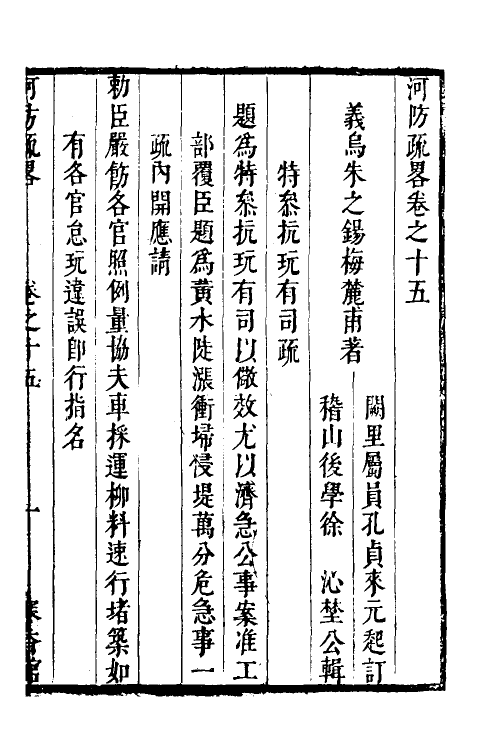 河防疏畧卷之十五
闕里屬員孔貞來元起訂
義烏朱之錫梅麓甫著
稽山後學徐　沁埜公輯
特叅抗玩有司疏
題爲特叅抗玩有司以儆效尤以濟急公事案准工
部覆臣題爲黃水陡漲衝埽侵堤萬分危急事一
疏內開應請
勅臣嚴飭各官照例量協夫車採運柳料速行堵築如
有各官怠玩違誤卽行指名
河防疏畧　卷之十五　一